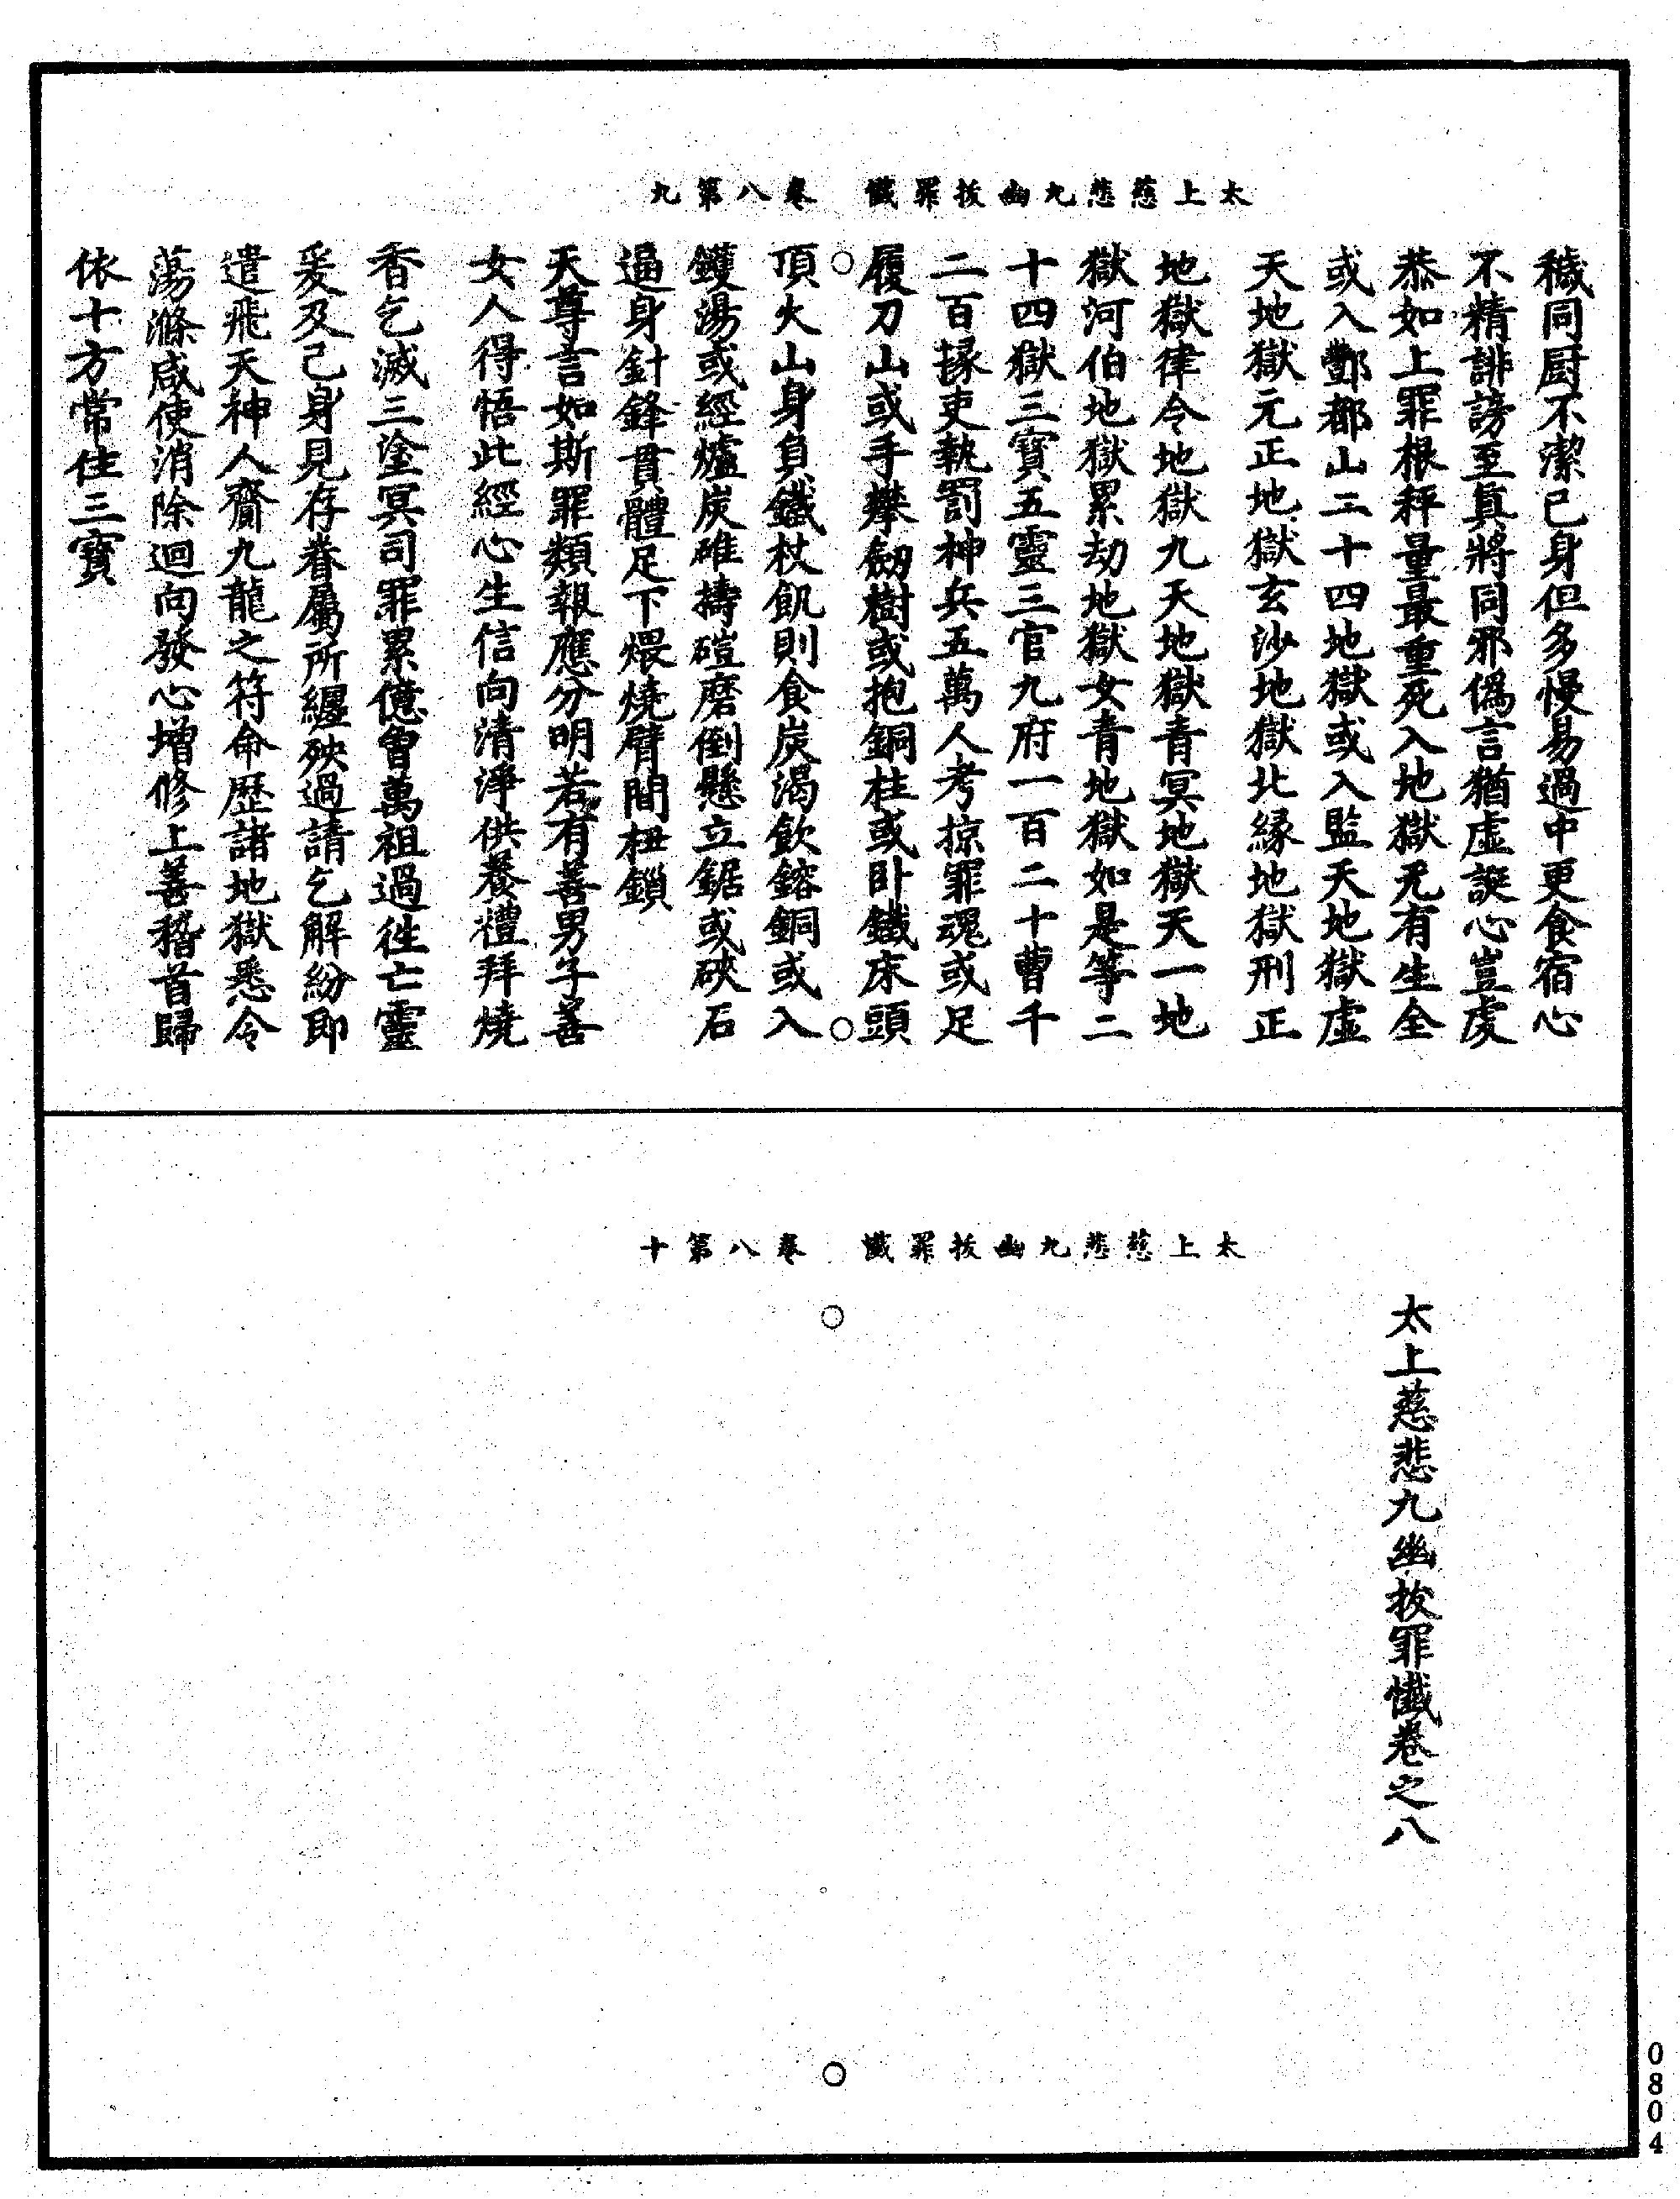 太上慈悲九幽拔罪懺　卷八第九
穢同厨不潔己身但多慢易過中更食宿心
不精誹謗至真將同邪僞言猶虛誕心豈虔
恭如上罪根秤量最重死入地獄无有生全
或入酆都山二十四地獄或入監天地獄虛
天地獄元正地獄玄沙地獄北緣地獄刑正
地獄律令地獄九天地獄青冥地獄天一地
獄河伯地獄累劫地獄女青地獄如是等二
十四獄三寶五靈三官九府一百二十曹千
二百掾吏執罰神兵五萬人考掠罪魂或足
履刀山或手攀劒樹或抱銅柱或卧鐵床頭
頂火山身負鐵杖飢則食炭渴飲鎔銅或入
鑊湯或經爐炭碓擣磑磨倒懸立鋸或硤石
逼身針鋒貫體足下煨燒臂間杻鎖
天尊言如斯罪類報應分明若有善男子善
女人得悟此經心生信向清淨供養禮拜燒
香乞滅三塗冥司罪累億曾萬祖過徃亡靈
爰及己身見存眷屬所纏殃過請乞解紛即
遣飛天神人齎九龍之符命歷諸地獄悉令
蕩滌咸使消除迴向發心增修上善稽首歸
依十方常住三寶
太上慈悲九幽拔罪懺　卷八第十
太上慈悲九幽拔罪懺卷之八
0804